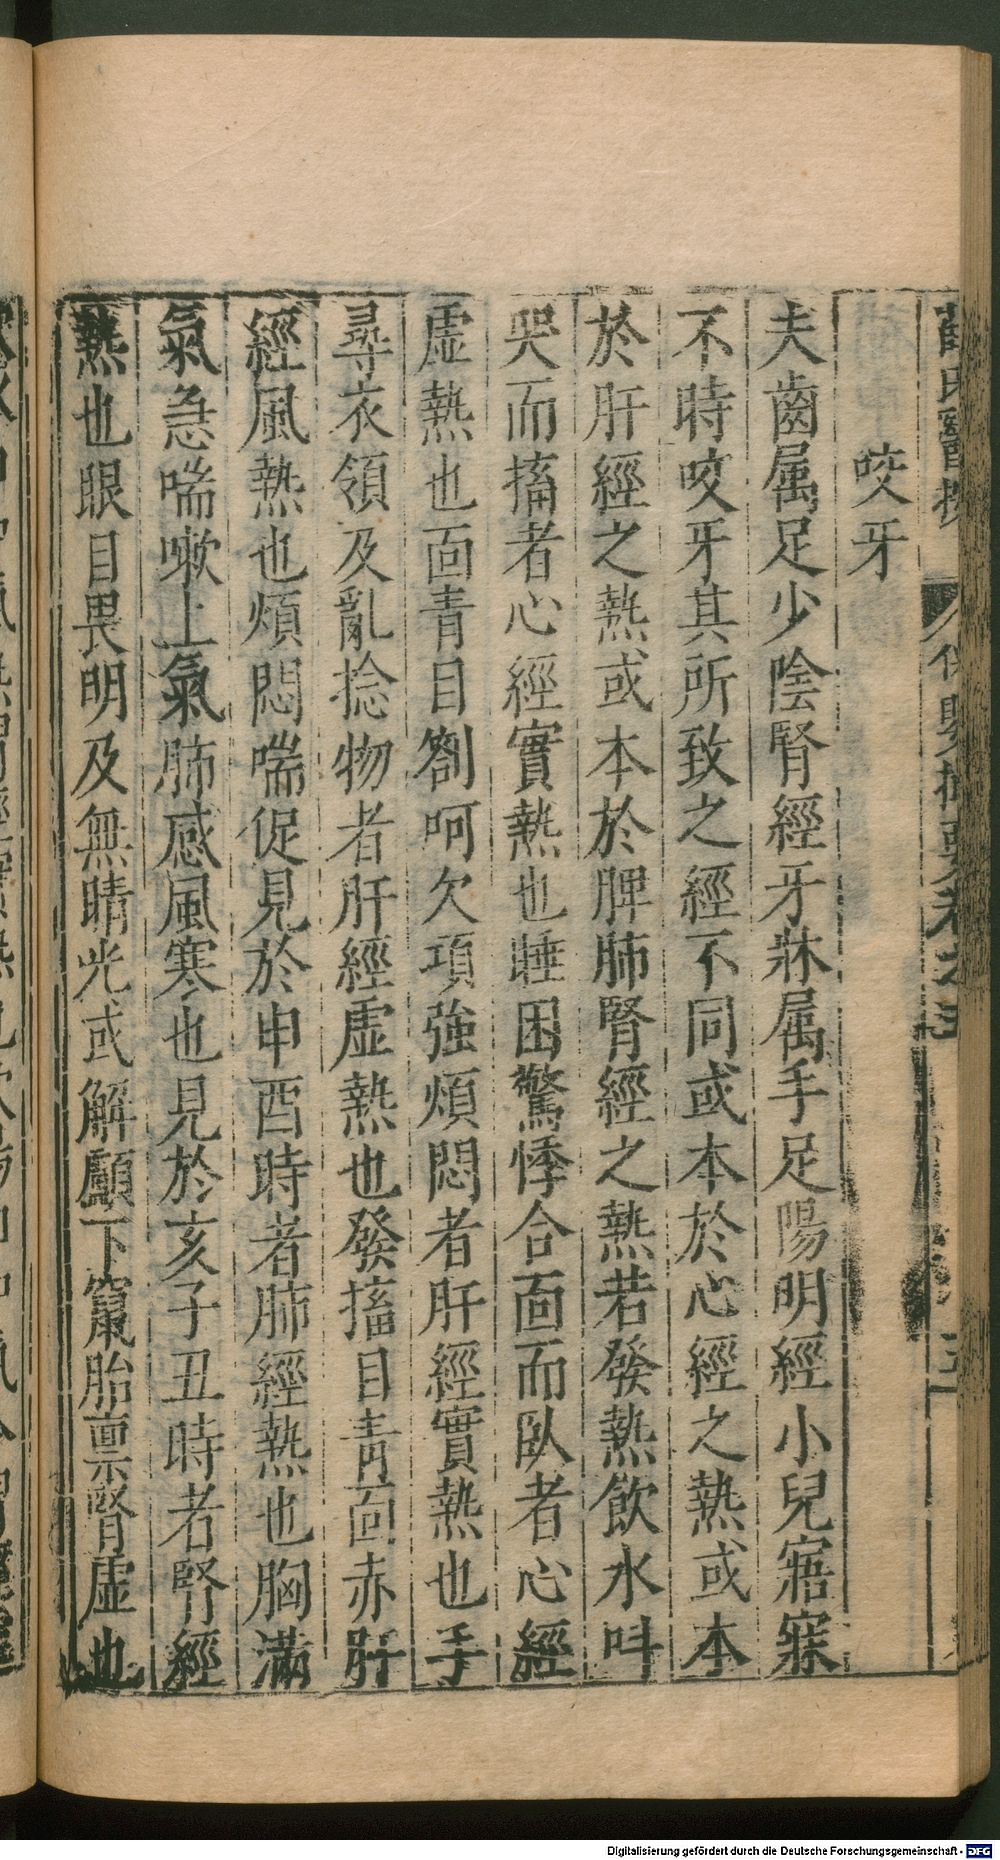 咬牙
夫齒属足少陰腎經牙牀属手足陽明經小兒寤寐
不時咬牙其所致之經不同或本於心經之熱或本
於肝經之熱或本於脾肺腎經之熱若發熱飲水呌
哭而搐者心經實熱也睡困驚悸合面而臥者心經
虛熱也面青目劄呵欠項強煩悶者肝經實熱也手
尋衣領及亂捻物者肝經虛熱也發搐目青面赤肝
經風熱也煩悶喘促見於申酉時者肺經熱也胸滿
氣急喘嗽上氣肺感風寒也見於亥子丑時者腎經
熱也眼目畏明及無睛光或解顱下竄胎禀腎虛也
Digitalisierung gefördert durch die Deutsche Forschungsgemeinschaft - DFG